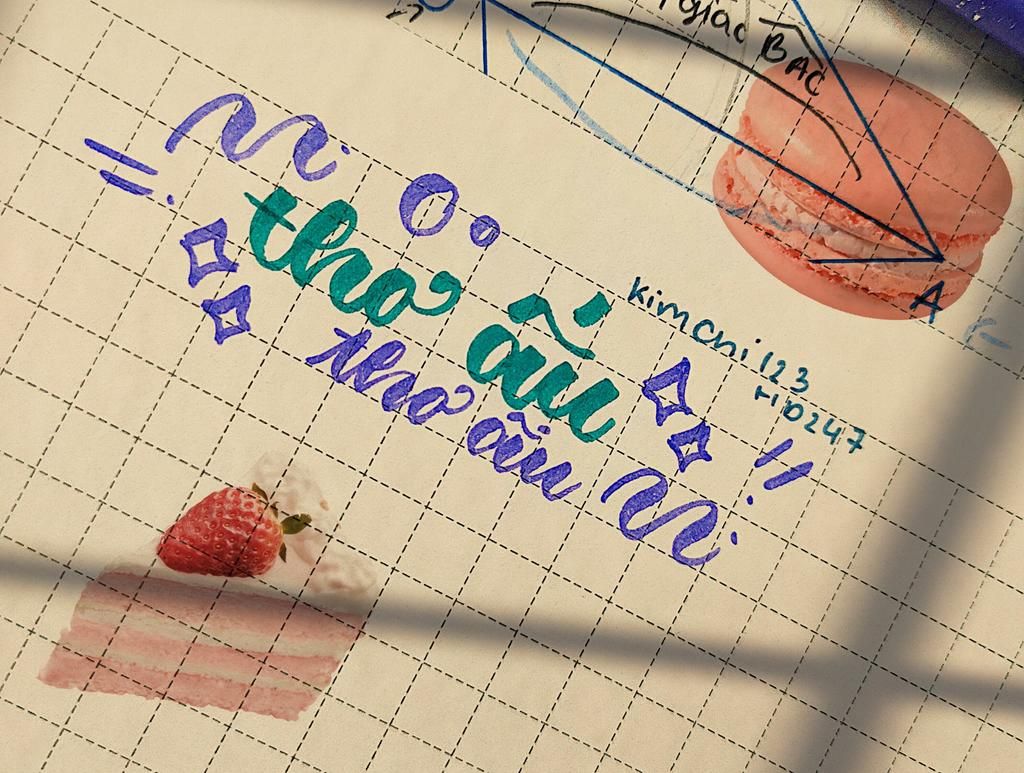 giác BAC
A
thơ ấu
thơ ấu
kimchi123
HD247
!!